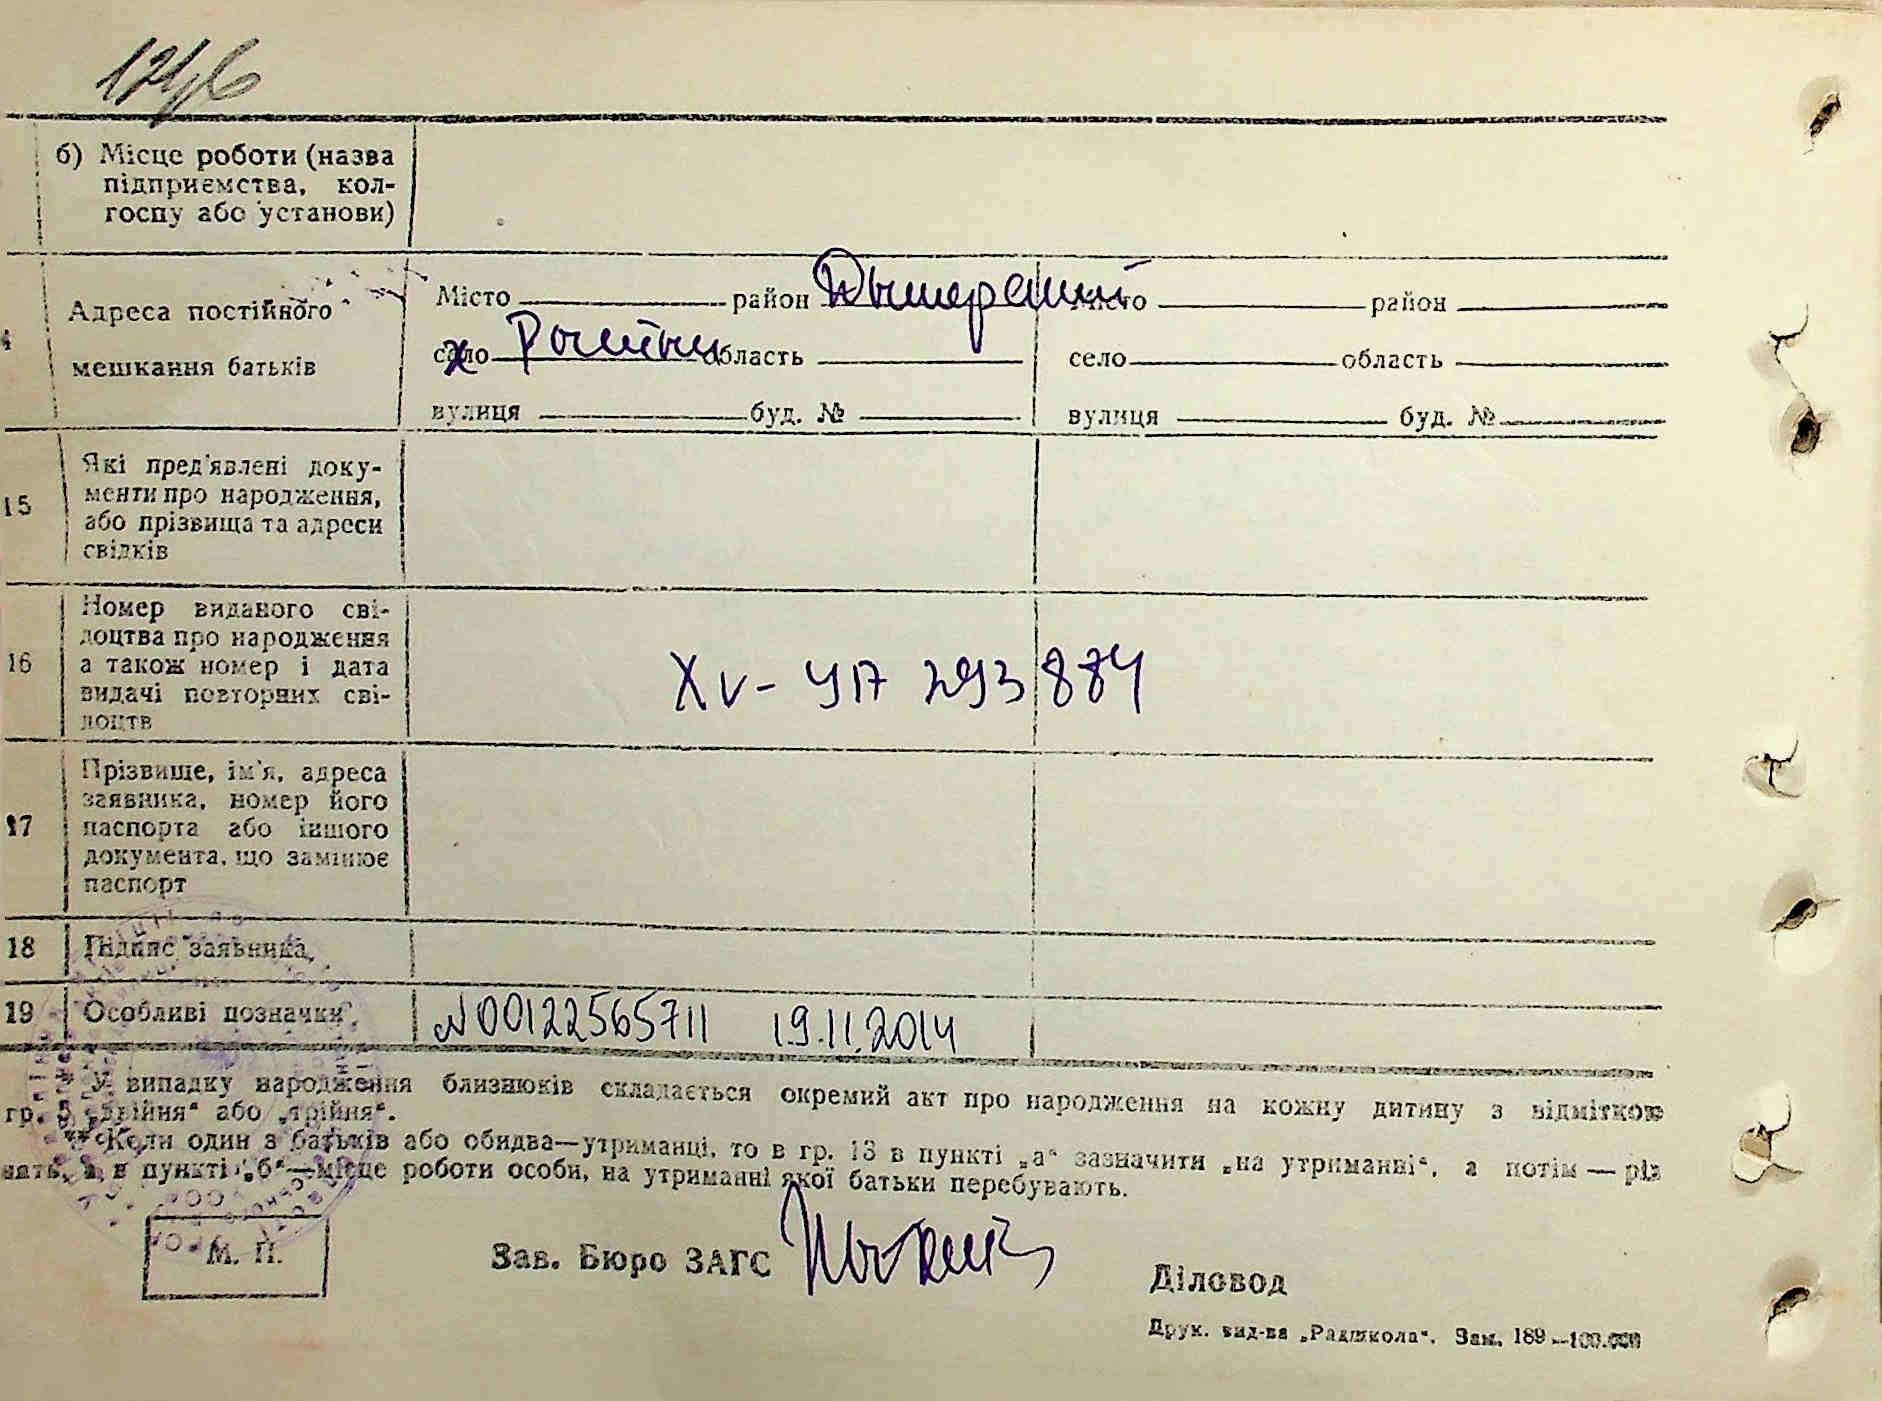 б) Місце роботи (назва
підприємства, кол-
госпу або установи)
Адреса постійного
мешкання батьків
Місто район Дымерский
село область
вулиця буд. №
Місто район
село область
вулиця буд. №
15 Які пред'явлені доку-
менти про народження,
або прізвища та адреси
свідків
16 Номер виданого сві-
доцтва про народження
а також номер і дата
видачі повторних сві-
доцтв
XV- УП 293884
17 Прізвище, ім'я, адреса
заявника, номер його
паспорта або іншого
документа, що замінює
паспорт
18 Підпис заявника
19 Особливі позначки
N00122565711 19.11.2014
У випадку народження близнюків складається окремий акт про народження на кожну дитину з відміткою
гр. 5 „двійня“ або „трійня“.
Коли один з батьків або обидва—утриманці, то в гр. 13 в пункті „а“ зазначити „на утриманні“, а потім — рід
нять, а в пункті „б“—місце роботи особи, на утриманні якої батьки перебувають.
М. П.
Зав. Бюро ЗАГС
Діловод
Друк. вид-ва „Радшкола“. Зам. 189—100.000